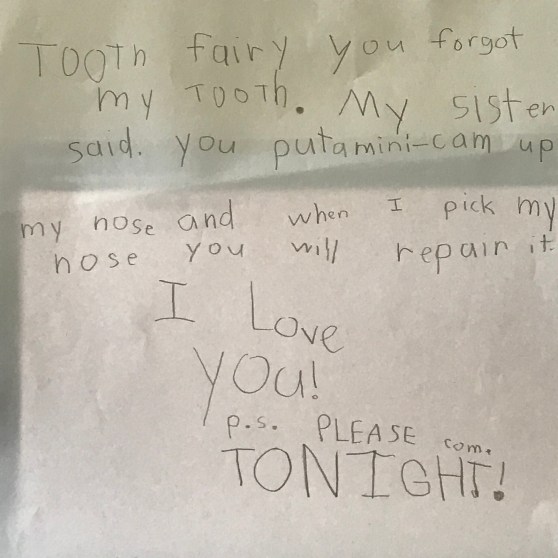 TOOTh fairy you forgot
my TOOTh. My sister
said. you putamini-cam up
my nose and when I pick my
nose you will repair it.
I Love
YOU!
p.s. PLEASE com.
TONIGHT!